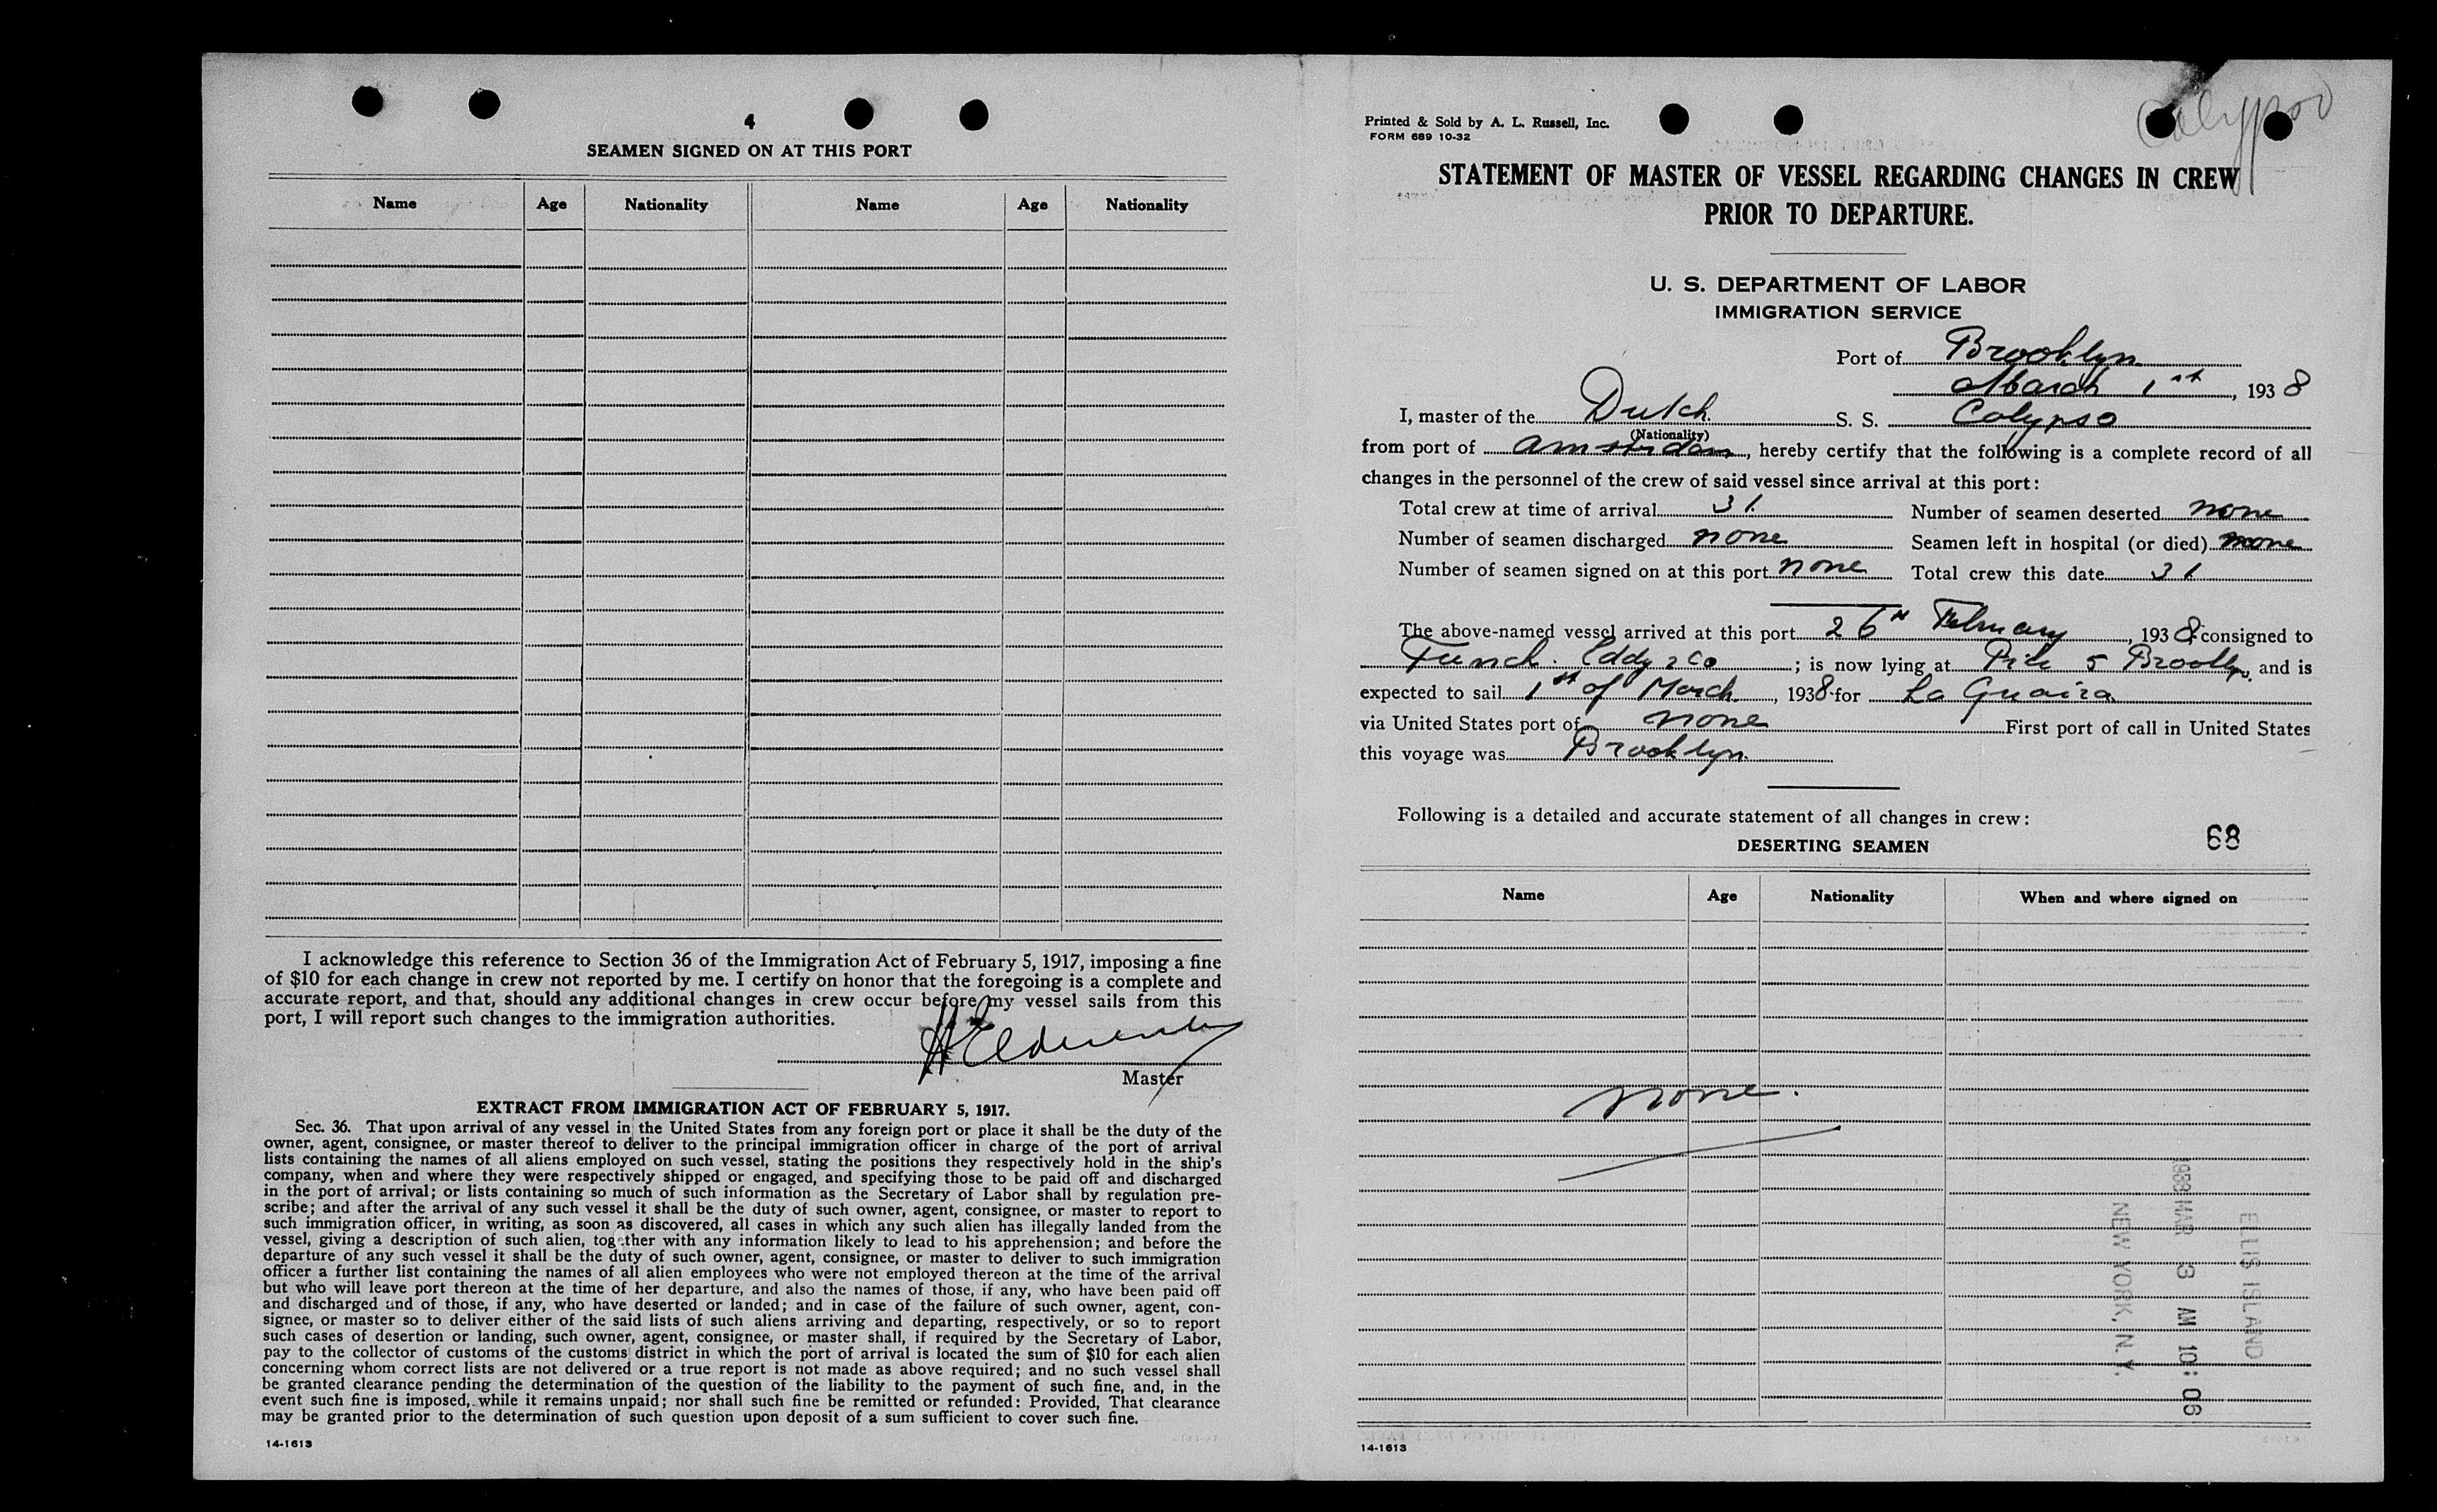 4
SEAMEN SIGNED ON AT THIS PORT
Name Age Nationality Name Age Nationality
I acknowledge this reference to Section 36 of the Immigration Act of February 5, 1917, imposing a fine
of $10 for each change in crew not reported by me. I certify on honor that the foregoing is a complete and
accurate report, and that, should any additional changes in crew occur before my vessel sails from this
port, I will report such changes to the immigration authorities.
Master
EXTRACT FROM IMMIGRATION ACT OF FEBRUARY 5, 1917.
Sec. 36. That upon arrival of any vessel in the United States from any foreign port or place it shall be the duty of the
owner, agent, consignee, or master thereof to deliver to the principal immigration officer in charge of the port of arrival
lists containing the names of all aliens employed on such vessel, stating the positions they respectively hold in the ship's
company, when and where they were respectively shipped or engaged, and specifying those to be paid off and discharged
in the port of arrival; or lists containing so much of such information as the Secretary of Labor shall by regulation pre-
scribe; and after the arrival of any such vessel it shall be the duty of such owner, agent, consignee, or master to report to
such immigration officer, in writing, as soon as discovered, all cases in which any such alien has illegally landed from the
vessel, giving a description of such alien, together with any information likely to lead to his apprehension; and before the
departure of any such vessel it shall be the duty of such owner, agent, consignee, or master to deliver to such immigration
officer a further list containing the names of all alien employees who were not employed thereon at the time of the arrival
but who will leave port thereon at the time of her departure, and also the names of those, if any, who have been paid off
and discharged and of those, if any, who have deserted or landed; and in case of the failure of such owner, agent, con-
signee, or master so to deliver either of the said lists of such aliens arriving and departing, respectively, or so to report
such cases of desertion or landing, such owner, agent, consignee, or master shall, if required by the Secretary of Labor,
pay to the collector of customs of the customs district in which the port of arrival is located the sum of $10 for each alien
concerning whom correct lists are not delivered or a true report is not made as above required; and no such vessel shall
be granted clearance pending the determination of the question of the liability to the payment of such fine, and, in the
event such fine is imposed, while it remains unpaid; nor shall such fine be remitted or refunded: Provided, That clearance
may be granted prior to the determination of such question upon deposit of a sum sufficient to cover such fine.
14-1613
Calypso
Printed & Sold by A. L. Russell, Inc.
FORM 689 10-32
STATEMENT OF MASTER OF VESSEL REGARDING CHANGES IN CREW
PRIOR TO DEPARTURE.
U. S. DEPARTMENT OF LABOR
IMMIGRATION SERVICE
Port of Brooklyn
March 1st, 1938
I, master of the Dutch S. S. Calypso
(Nationality)
from port of Amsterdam, hereby certify that the following is a complete record of all
changes in the personnel of the crew of said vessel since arrival at this port:
Total crew at time of arrival 31 Number of seamen deserted none
Number of seamen discharged none Seamen left in hospital (or died) none
Number of seamen signed on at this port none Total crew this date 31
The above-named vessel arrived at this port 26th February, 1938 consigned to
Funch. Eddy & Co; is now lying at Pier 5 Brooklyn, and is
expected to sail 1st of March, 1938 for La Guaira
via United States port of none First port of call in United States
this voyage was Brooklyn.
Following is a detailed and accurate statement of all changes in crew:
68
DESERTING SEAMEN
Name Age Nationality When and where signed on
none.
ELLIS ISLAND
1938 MAR 3 AM 10:06
NEW YORK, N.Y.
14-1613